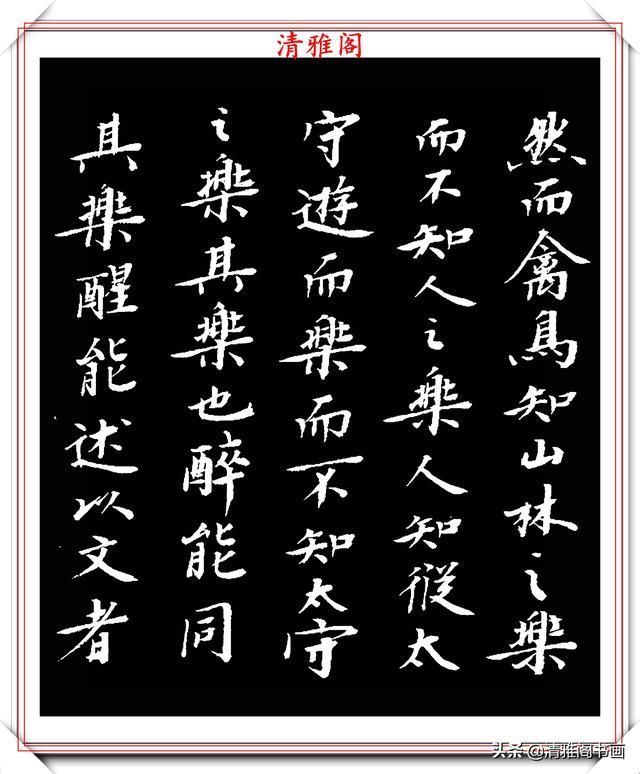 清雅阁
然而禽鳥知山林之樂
而不知人之樂人知從太
守遊而樂而不知太守
之樂其樂也醉能同
其樂醒能述以文者
头条@清雅阁书画